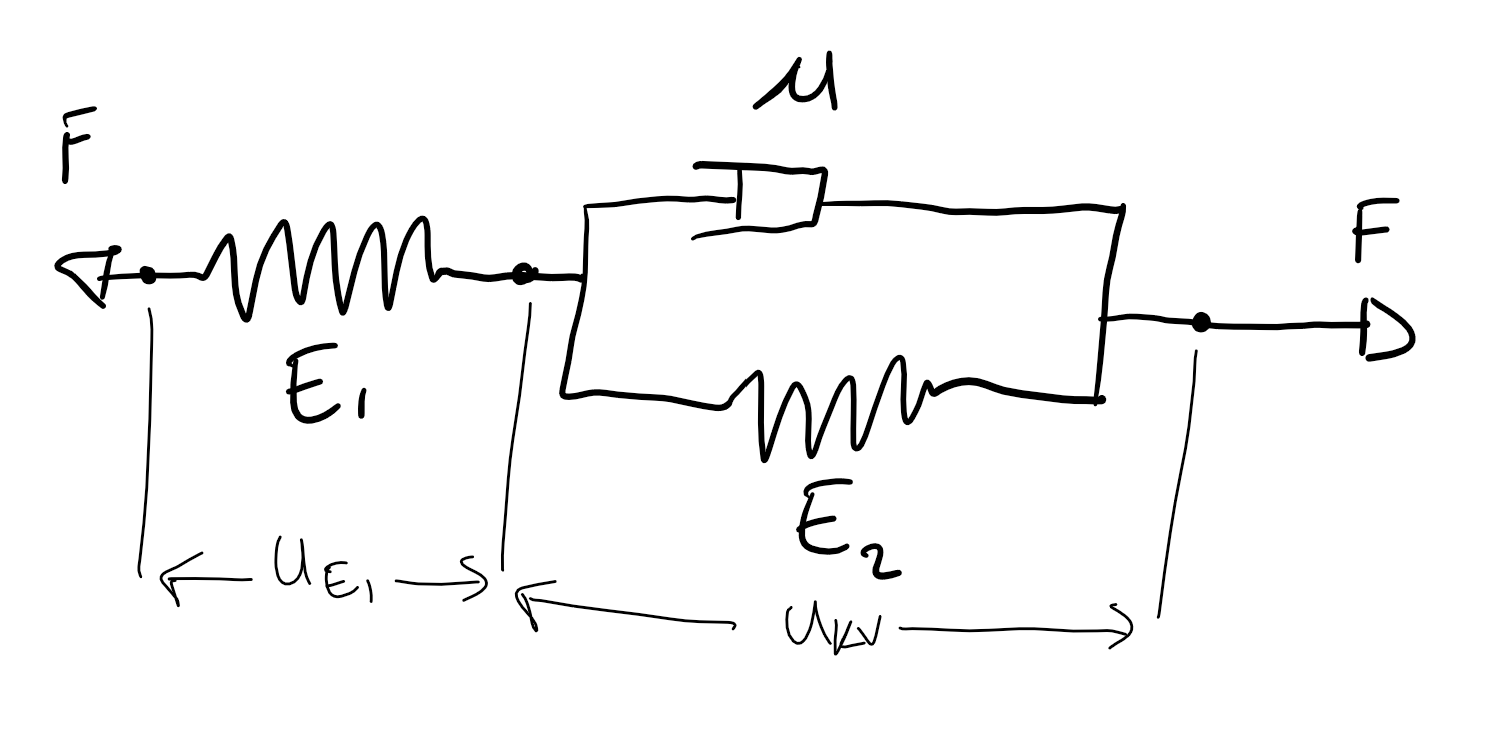 μ
F
F
E₁
E₂
u_E₁
u_KV